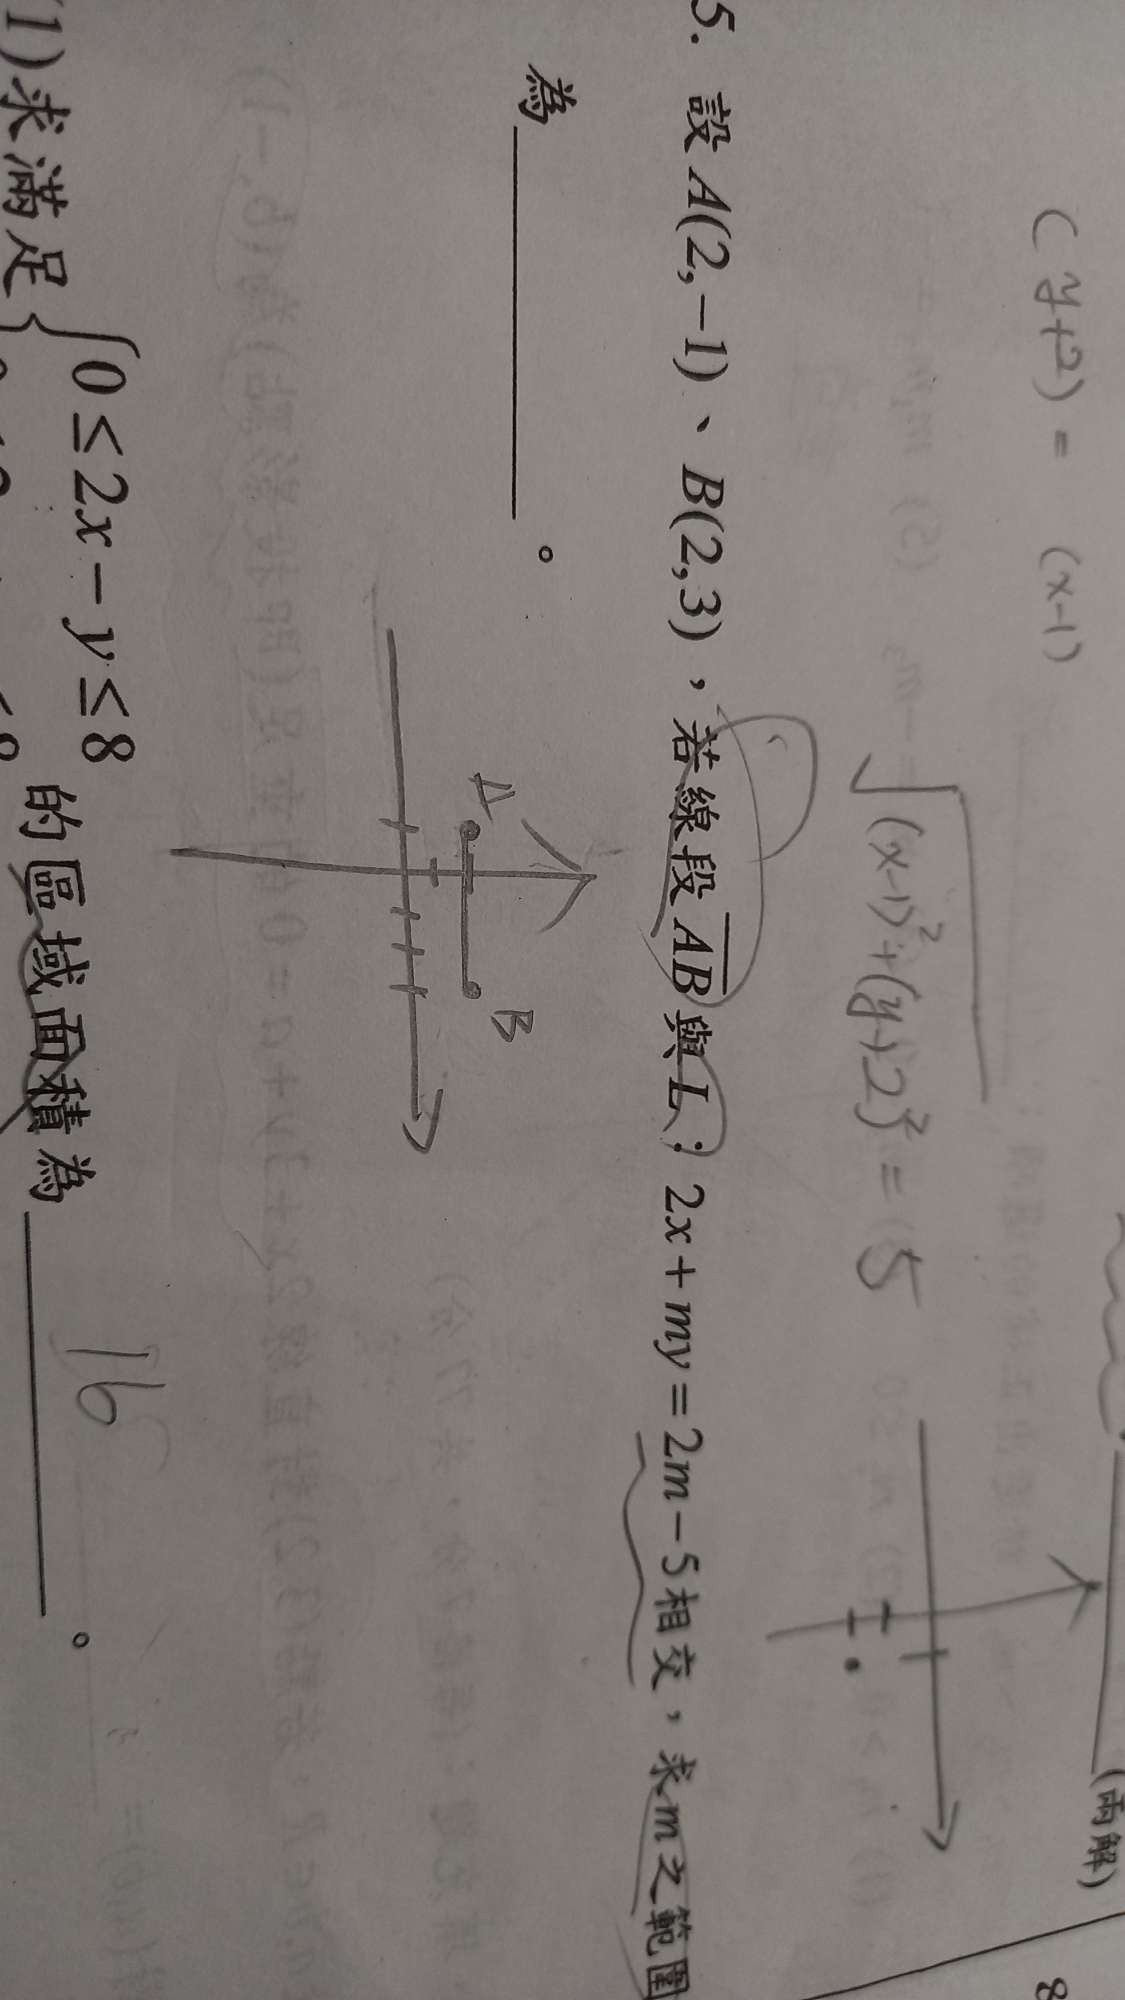 (y+2) = (x-1)
(兩解)
8
√(x-1)²+(y+2)² = 5
5. 設 A(2,-1)、B(2,3)，若線段 AB 與 L：2x+my=2m-5 相交，求 m 之範圍
為 ________ 。
A
B
(1)求滿足 { 0≤2x-y≤8 的區域面積為 ________ 。
16